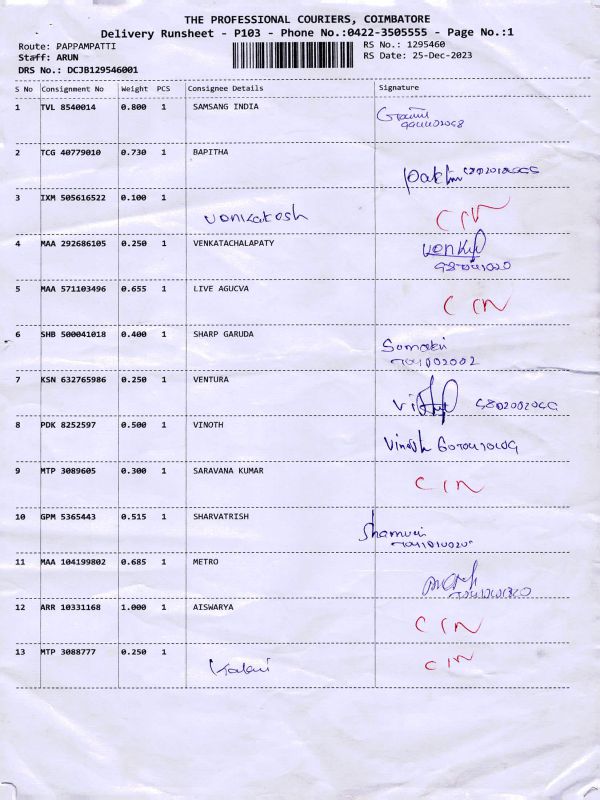 THE PROFESSIONAL COURIERS, COIMBATORE
Delivery Runsheet - P103 - Phone No.:0422-3505555 - Page No.:1
Route: PAPPAMPATTI
Staff: ARUN
DRS No.: DCJB129546001
RS No.: 1295460
RS Date: 25-Dec-2023
S No Consignment No Weight PCS Consignee Details Signature
1 TVL 8540014 0.800 1 SAMSANG INDIA
2 TCG 40779010 0.730 1 BAPITHA
3 IXM 505616522 0.100 1 Venkatesh CIN
4 MAA 292686105 0.250 1 VENKATACHALAPATY
5 MAA 571103496 0.655 1 LIVE AGUCVA CIN
6 SHB 500041018 0.400 1 SHARP GARUDA
7 KSN 632765986 0.250 1 VENTURA
8 PDK 8252597 0.500 1 VINOTH Vinoth
9 MTP 3089605 0.300 1 SARAVANA KUMAR CIN
10 GPM 5365443 0.515 1 SHARVATRISH
11 MAA 104199802 0.685 1 METRO
12 ARR 10331168 1.000 1 AISWARYA CIN
13 MTP 3088777 0.250 1 CIN